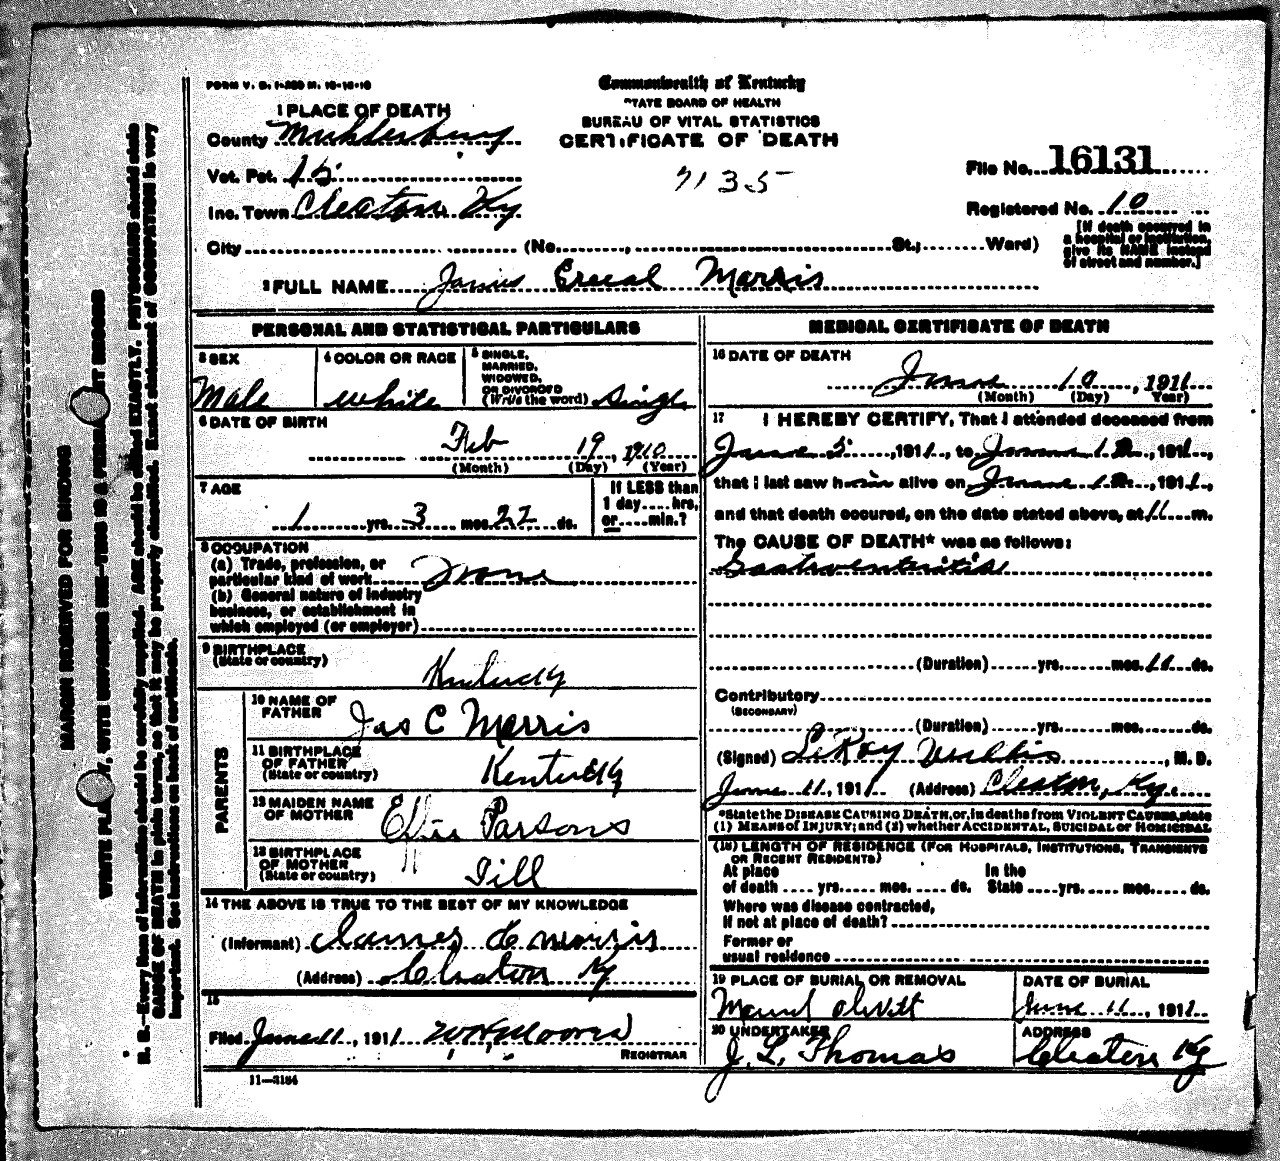 FORM V. S. 1-200 M. 10-10-10
Commonwealth of Kentucky
STATE BOARD OF HEALTH
BUREAU OF VITAL STATISTICS
CERTIFICATE OF DEATH
7135
1 PLACE OF DEATH
County
Vot. Pct. 15
Inc. Town Cleaton Ky
City (No. , St.; Ward)
File No. 16131
Registered No. 10
[If death occurred in
a hospital or institution,
give its NAME instead
of street and number.]
2 FULL NAME Morris
PERSONAL AND STATISTICAL PARTICULARS
3 SEX
Male
4 COLOR OR RACE
White
5 SINGLE,
MARRIED,
WIDOWED,
OR DIVORCED
(Write the word) Single
6 DATE OF BIRTH
Feb 19, 1910
(Month) (Day) (Year)
7 AGE
1 yrs. 3 mos. 22 ds.
If LESS than
1 day.... hrs,
or.....min.?
8 OCCUPATION
(a) Trade, profession, or
particular kind of work None
(b) General nature of industry
business, or establishment in
which employed (or employer)
9 BIRTHPLACE
(State or country)
Kentucky
PARENTS
10 NAME OF
FATHER
Jas C Morris
11 BIRTHPLACE
OF FATHER
(State or country)
Kentucky
12 MAIDEN NAME
OF MOTHER
Parsons
13 BIRTHPLACE
OF MOTHER
(State or country)
14 THE ABOVE IS TRUE TO THE BEST OF MY KNOWLEDGE
(Informant) James C Morris
(Address) Cleaton Ky
15
Filed June 11, 1911 W H Moore
REGISTRAR
11—3184
MEDICAL CERTIFICATE OF DEATH
16 DATE OF DEATH
June 10, 1911
(Month) (Day) (Year)
17 I HEREBY CERTIFY, That I attended deceased from
June 5, 1911, to June 10, 1911,
that I last saw him alive on June 10, 1911,
and that death occured, on the date stated above, at 11 m.
The CAUSE OF DEATH* was as follows:
Gastroenteritis
(Duration) yrs. mos. ds.
Contributory
(SECONDARY)
(Duration) yrs. mos. ds.
(Signed) LeRoy , M. D.
June 11, 1911 (Address) Cleaton, Ky.
*State the DISEASE CAUSING DEATH, or, in deaths from VIOLENT CAUSES, state
(1) MEANS OF INJURY; and (2) whether ACCIDENTAL, SUICIDAL or HOMICIDAL
(18) LENGTH OF RESIDENCE (FOR HOSPITALS, INSTITUTIONS, TRANSIENTS
OR RECENT RESIDENTS)
At place In the
of death .... yrs. mos. ds. State yrs. mos. ds.
Where was disease contracted,
if not at place of death?
Former or
usual residence
19 PLACE OF BURIAL OR REMOVAL
DATE OF BURIAL
June 11, 1911
20 UNDERTAKER
J. L. Thomas
ADDRESS
Cleaton Ky
MARGIN RESERVED FOR BINDING
N. B.—Every item of information should be carefully supplied. AGE should be stated EXACTLY. PHYSICIANS should state
CAUSE OF DEATH in plain terms, so that it may be properly classified. Exact statement of OCCUPATION is very
important. See instructions on back of certificate.